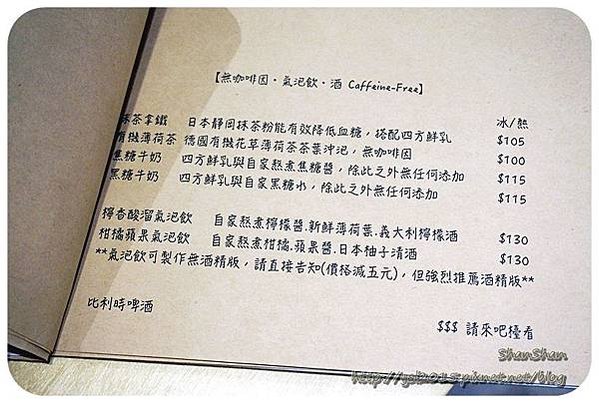 【無咖啡因·氣泡飲·酒 Caffeine-Free】
冰/熱
抹茶拿鐵 日本靜岡抹茶粉能有效降低血糖，搭配四方鮮乳 $105
有機薄荷茶 德國有機花草薄荷茶茶葉沖泡，無咖啡因 $100
焦糖牛奶 四方鮮乳與自家熬煮焦糖醬，除此之外無任何添加 $115
黑糖牛奶 四方鮮乳與自家黑糖水，除此之外無任何添加 $115
檸香酸溜氣泡飲 自家熬煮檸檬醬.新鮮薄荷葉.義大利檸檬酒 $130
柑橘蘋果氣泡飲 自家熬煮柑橘.蘋果醬.日本柚子清酒 $130
**氣泡飲可製作無酒精版，請直接告知(價格減五元)，但強烈推薦酒精版**
比利時啤酒
$$$ 請來吧檯看
ShanShan